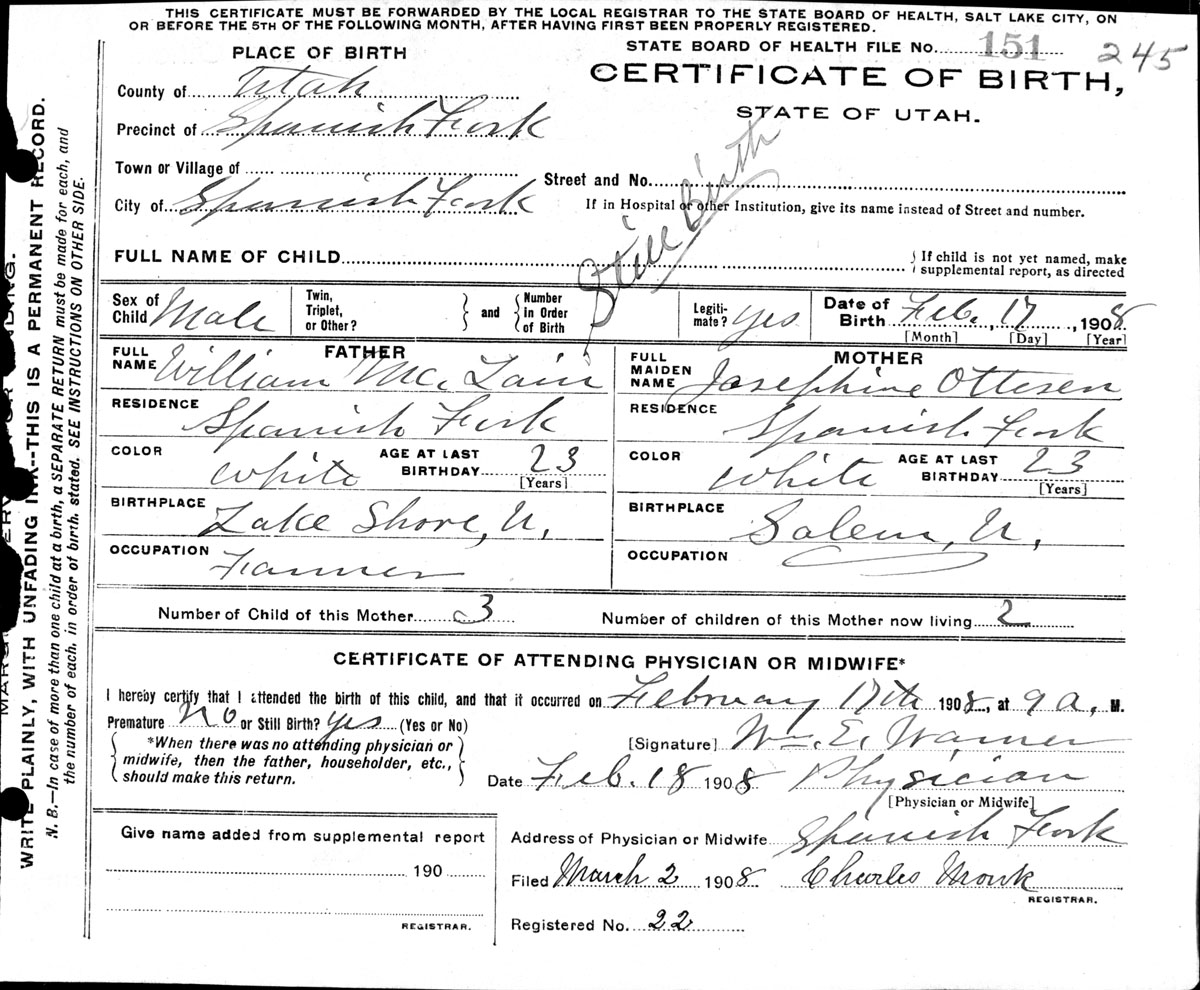 THIS CERTIFICATE MUST BE FORWARDED BY THE LOCAL REGISTRAR TO THE STATE BOARD OF HEALTH, SALT LAKE CITY, ON
OR BEFORE THE 5TH OF THE FOLLOWING MONTH, AFTER HAVING FIRST BEEN PROPERLY REGISTERED.
PLACE OF BIRTH
STATE BOARD OF HEALTH FILE No. 151 245
CERTIFICATE OF BIRTH,
STATE OF UTAH.
County of Utah
Precinct of Spanish Fork
Town or Village of
Street and No.
City of Spanish Fork
If in Hospital or other Institution, give its name instead of Street and number.
Still Birth
FULL NAME OF CHILD
If child is not yet named, make
supplemental report, as directed
Sex of Child Male
Twin, Triplet, or Other? and Number in Order of Birth
Legiti-mate? yes
Date of Birth Feb. 17, 1908
[Month] [Day] [Year]
FATHER
FULL NAME William Mc. Lain
RESIDENCE Spanish Fork
COLOR White AGE AT LAST BIRTHDAY 23
[Years]
BIRTHPLACE Lake Shore, U,
OCCUPATION Farmer
MOTHER
FULL MAIDEN NAME Josephine Ottesen
RESIDENCE Spanish Fork
COLOR White AGE AT LAST BIRTHDAY 23
[Years]
BIRTHPLACE Salem, U,
OCCUPATION
Number of Child of this Mother 3 Number of children of this Mother now living 2
CERTIFICATE OF ATTENDING PHYSICIAN OR MIDWIFE*
I hereby certify that I attended the birth of this child, and that it occurred on February 17th 1908, at 9 a, M.
Premature No or Still Birth? yes (Yes or No)
*When there was no attending physician or
midwife, then the father, householder, etc.,
should make this return.
[Signature] Wm. E. Warner
Date Feb. 18 1908 Physician
[Physician or Midwife]
Give name added from supplemental report
190
REGISTRAR.
Address of Physician or Midwife Spanish Fork
Filed March 2 1908 Charles Monk
REGISTRAR.
Registered No. 22
WRITE PLAINLY, WITH UNFADING INK--THIS IS A PERMANENT RECORD.
N. B.—In case of more than one child at a birth, a SEPARATE RETURN must be made for each, and
the number of each, in order of birth, stated. SEE INSTRUCTIONS ON OTHER SIDE.